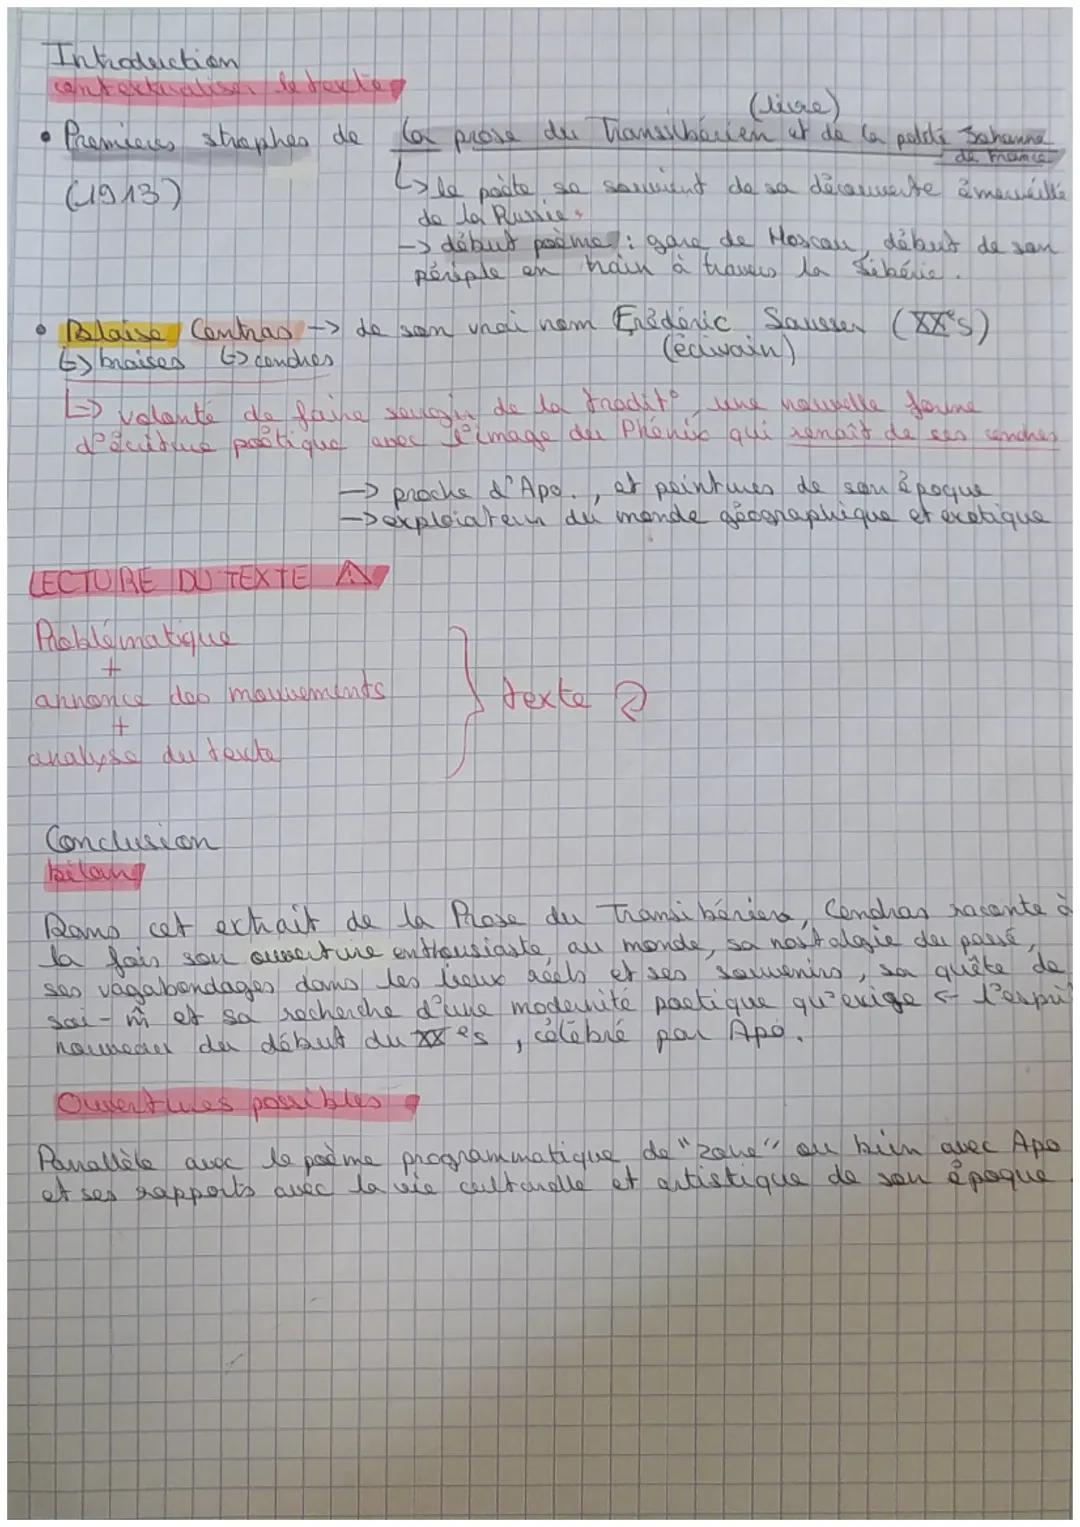 Introduction
contextualiser le texte
(livre)
• Premières strophes de La prose du Transsibérien et de la petite Jehanne
de France
(1913)
↳ le poète se souvient de sa découverte émerveillé
de la Russie.
-> début poème : gare de Moscou, début de son
périple en train à travers la Sibérie.
• Blaise Cendras -> de son vrai nom Frédéric Sausser (XXe s)
↳ braises ↳ cendres (écrivain)
↳ volonté de faire surgir de la tradit°, une nouvelle forme
d'écriture poétique avec l'image du Phénix qui renaît de ses cendres
-> proche d'Apo., et peintures de son époque
-> explorateur du monde géographique et exotique
LECTURE DU TEXTE ⚠
Problématique
+
annonce des mouvements
+
analyse du texte
texte 2
Conclusion
bilan
Dans cet extrait de la Prose du Transibérien, Cendras raconte à
la fois son ouverture enthousiaste au monde, sa nostalgie du passé,
ses vagabondages dans les lieux réels et ses souvenirs, sa quête de
soi-m̂ et sa recherche d'une modernité poétique qu'exige l'esprit
nouveau du début du XXe s, célébré par Apo.
Ouvertures possibles
Parallèle avec le poème programmatique de "zone" ou bien avec Apo
et ses rapports avec la vie culturelle et artistique de son époque